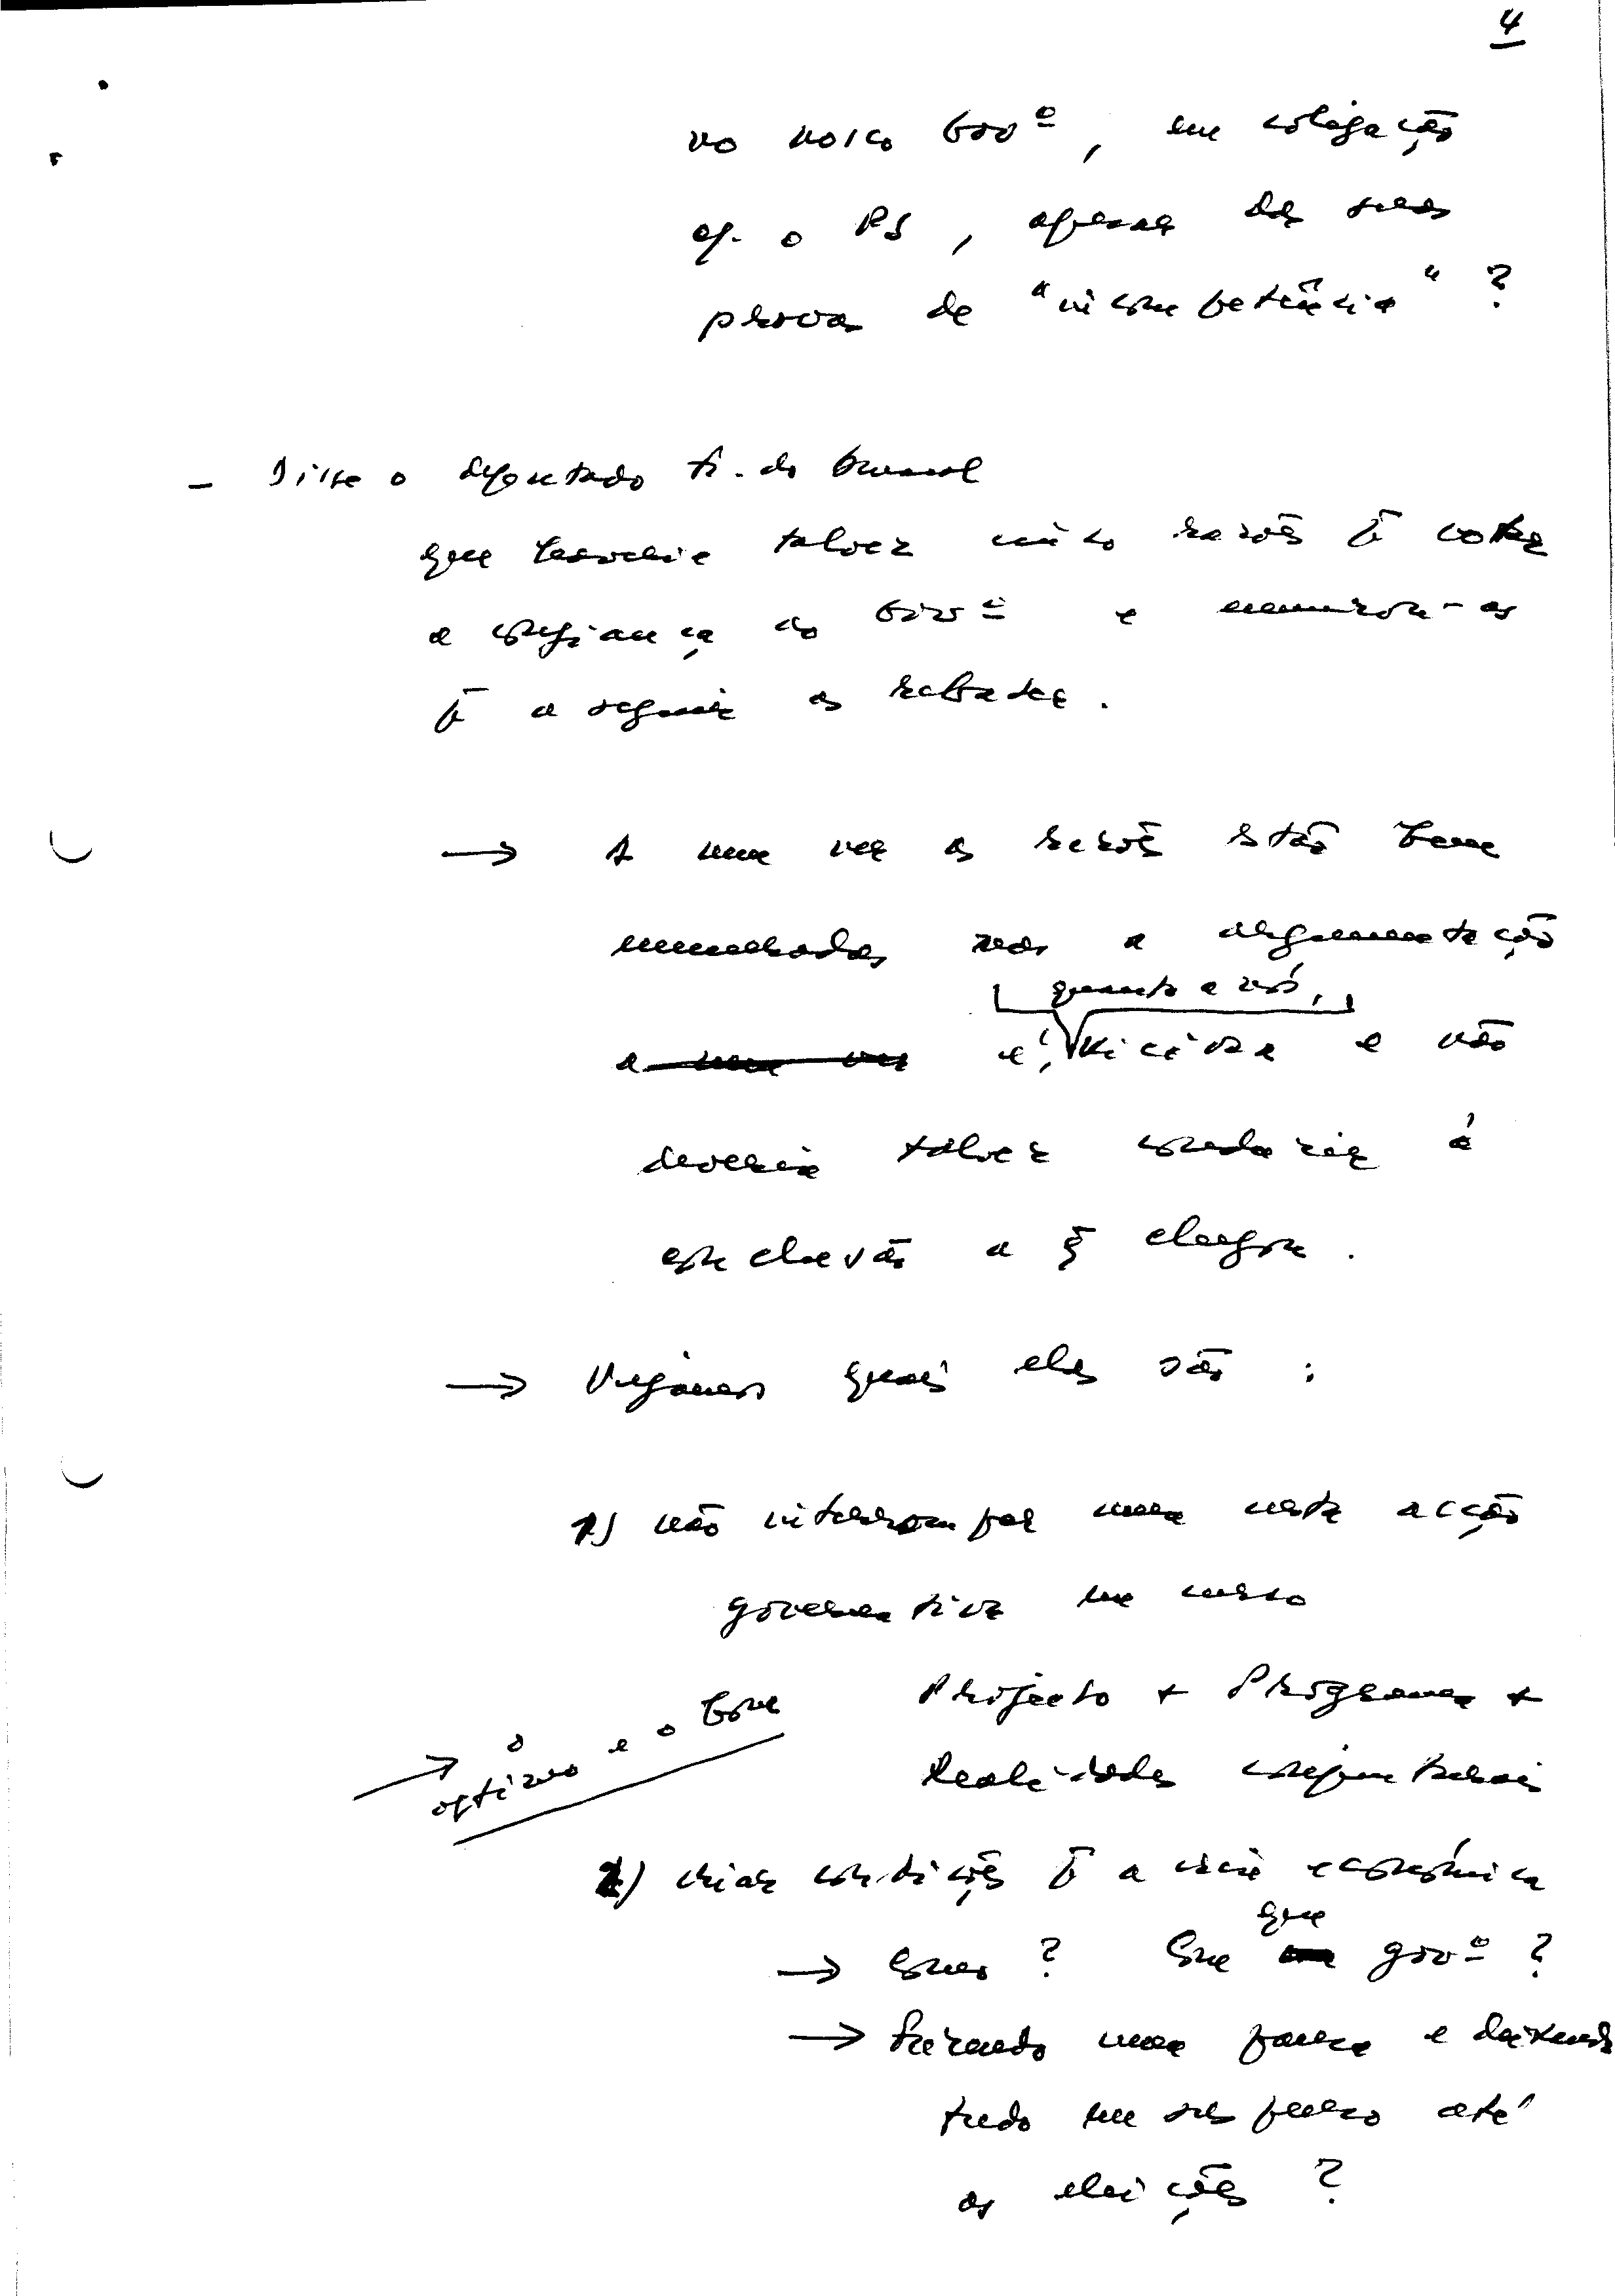 4
no nosso Govº, em coligação
c/. o PS, apesar das suas
provas de "incompetência"?
- Disse o deputado F. do Amaral
que haveria talvez cinco razões p̄ votar
a confiança ao Govº e enumerou-as
p̄ a seguir as rebater.
→ A meu ver as razões estão bem
enumeradas mas a argumentação
quanto a nós,
é, viciosa e não
deveria talvez conduzir à
conclusão a q̄ chegou.
→ Vejamos quais elas são:
1) não interromper uma certa acção
governativa em curso
Projecto + Programa +
Realidades conjunturais
→ o óptimo e o bom
2) criar condições p̄ a vida económica
que
→ Como? Com govº?
→ Fazendo uma pausa e deixando
tudo em suspenso até
as eleições?